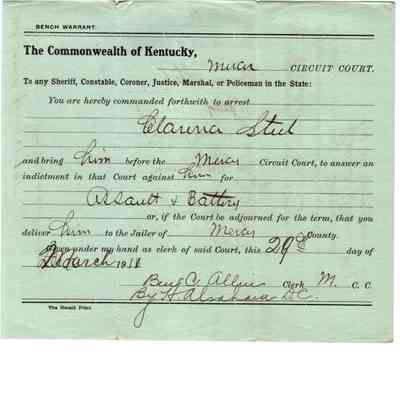 BENCH WARRANT.
The Commonwealth of Kentucky,
Mercer CIRCUIT COURT.
To any Sheriff, Constable, Coroner, Justice, Marshal, or Policeman in the State:
You are hereby commanded forthwith to arrest
Clarence Steel
and bring him before the Mercer Circuit Court, to answer an
indictment in that Court against him for
Assault & Battery
or, if the Court be adjourned for the term, that you
deliver him to the Jailer of Mercer County.
Given under my hand as clerk of said Court, this 29 day of
March 191
Ben C. Allin Clerk M. C. C.
By H D.C.
The Herald Print